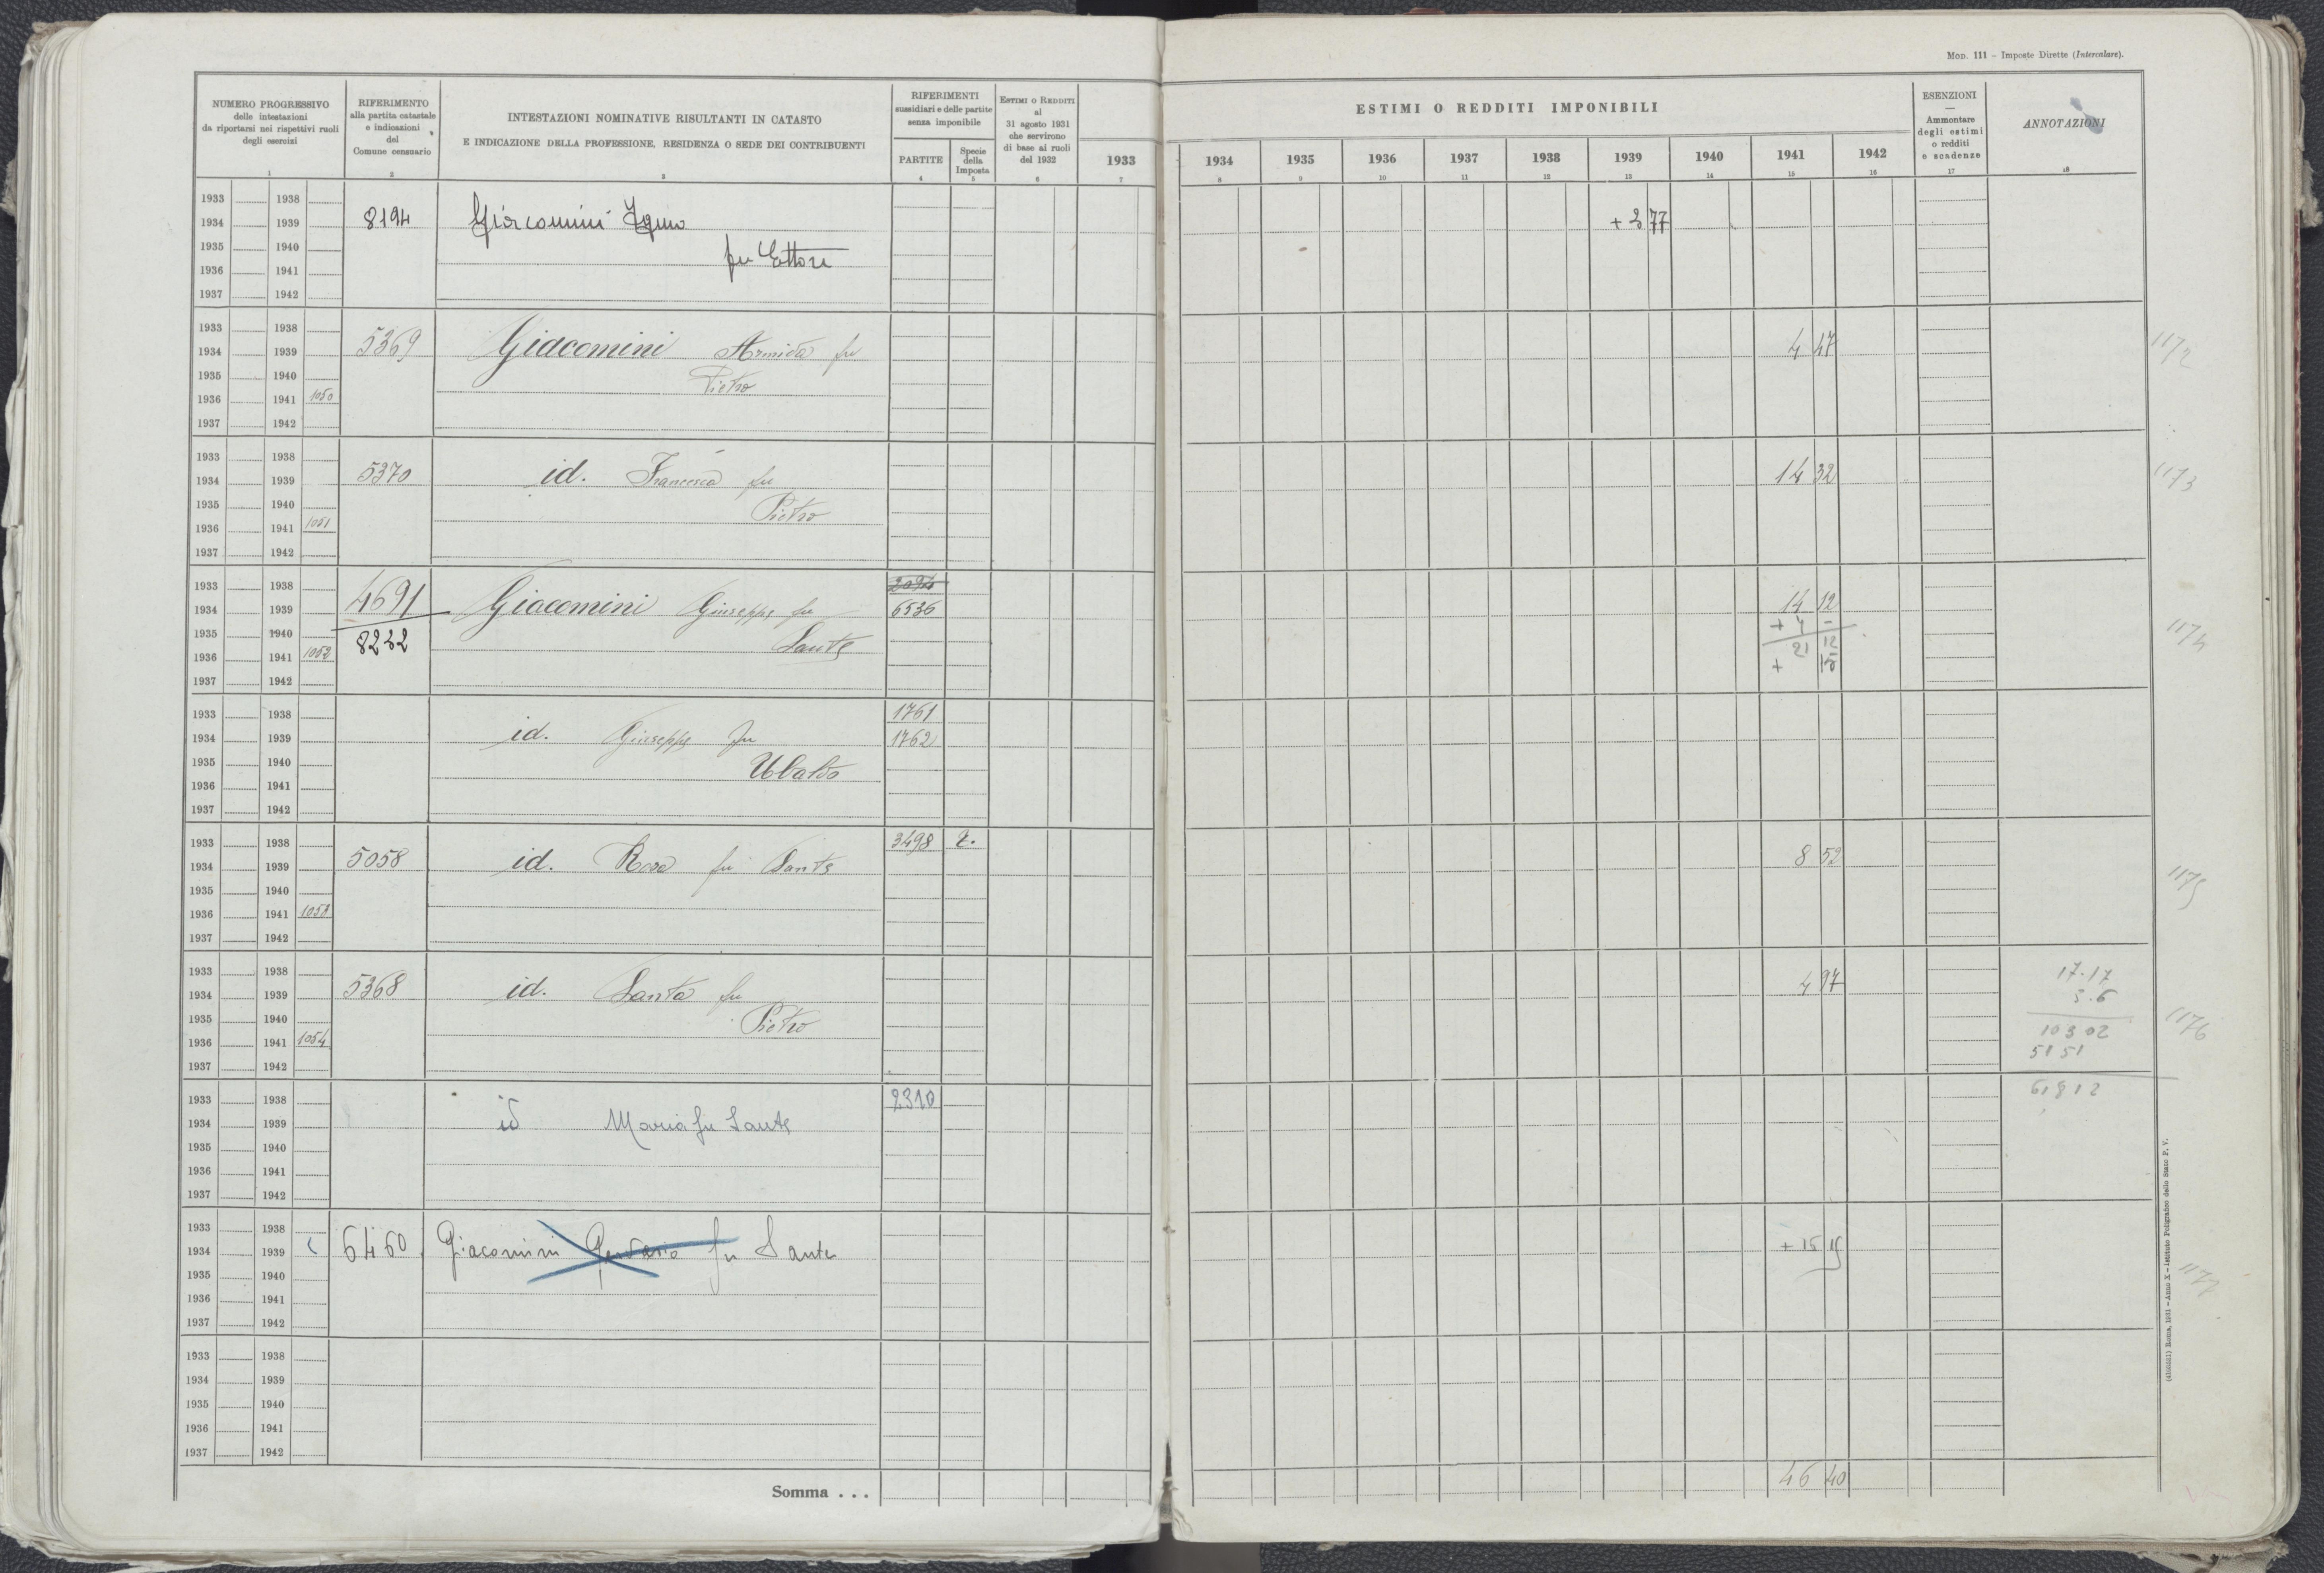 MOD. 111 – Imposte Dirette (Intercalare).
NUMERO PROGRESSIVO
delle intestazioni
da riportarsi nei rispettivi ruoli
degli esercizi
RIFERIMENTO
alla partita catastale
e indicazioni
del
Comune censuario
INTESTAZIONI NOMINATIVE RISULTANTI IN CATASTO
E INDICAZIONE DELLA PROFESSIONE, RESIDENZA O SEDE DEI CONTRIBUENTI
RIFERIMENTI
sussidiari e delle partite
senza imponibile
PARTITE
Specie
della
Imposta
ESTIMI O REDDITI
al
31 agosto 1931
che servirono
di base ai ruoli
del 1932
ESTIMI O REDDITI IMPONIBILI
1933 1934 1935 1936 1937 1938 1939 1940 1941 1942
ESENZIONI
—
Ammontare
degli estimi
o redditi
e scadenze
ANNOTAZIONI
1 2 3 4 5 6 7 8 9 10 11 12 13 14 15 16 17 18
1933 1938
1934 1939 8194 Giacomini + 3 77
1935 1940 fu Ettore
1936 1941
1937 1942
1933 1938
1934 1939 5369 Giacomini Armida fu 4 47 1172
1935 1940 Pietro
1936 1941 1050
1937 1942
1933 1938
1934 1939 5370 id. Francesca fu 14 32 1173
1935 1940 Pietro
1936 1941 1051
1937 1942
1933 1938
1934 1939 4691 Giacomini Giuseppe fu 6536 14 12
1935 1940 8232 Sante + 4 – 1174
1936 1941 1052 21 12
1937 1942 +
1933 1938 1761
1934 1939 id. Giuseppe fu 1762
1935 1940 Ubaldo
1936 1941
1937 1942
1933 1938 3498
1934 1939 5058 id. Rosa fu Sante 8 52 1175
1935 1940
1936 1941 1053
1937 1942
1933 1938 17.17
1934 1939 5368 id. Santa fu 4 97 3.6
1935 1940 Pietro 10302 1176
1936 1941 1054 5151
1937 1942
1933 1938 2310 61812
1934 1939 id Maria fu Sante
1935 1940
1936 1941
1937 1942
1933 1938
1934 1939 6460 Giacomini fu Sante + 15 15
1935 1940 1177
1936 1941
1937 1942
1933 1938
1934 1939
1935 1940
1936 1941
1937 1942
Somma . . . 46 40
Roma, 1931 – Anno X – Istituto Poligrafico dello Stato P. V.